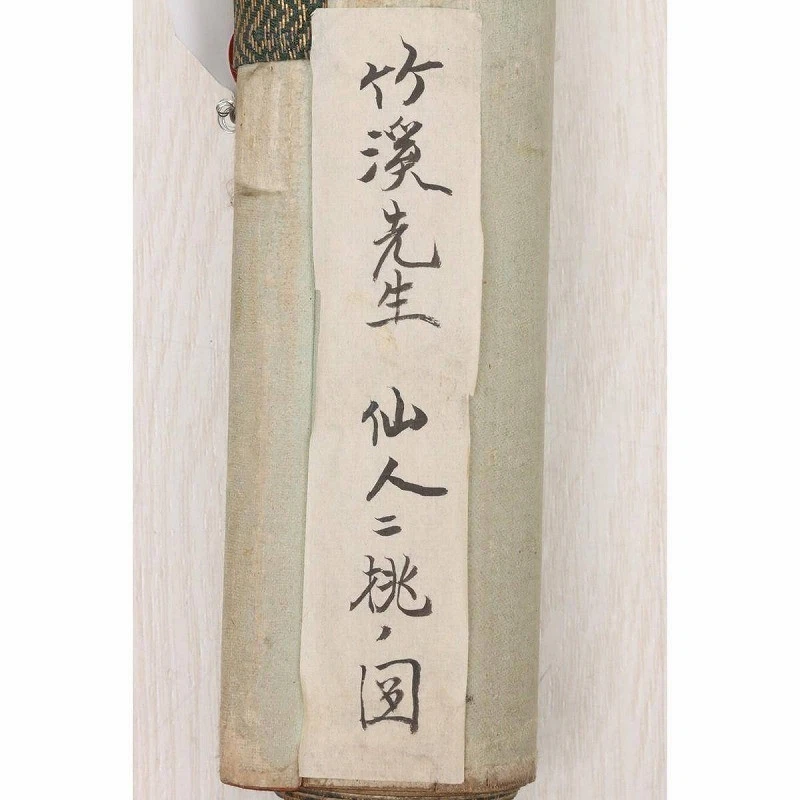 竹溪先生 仙人ニ桃ノ図